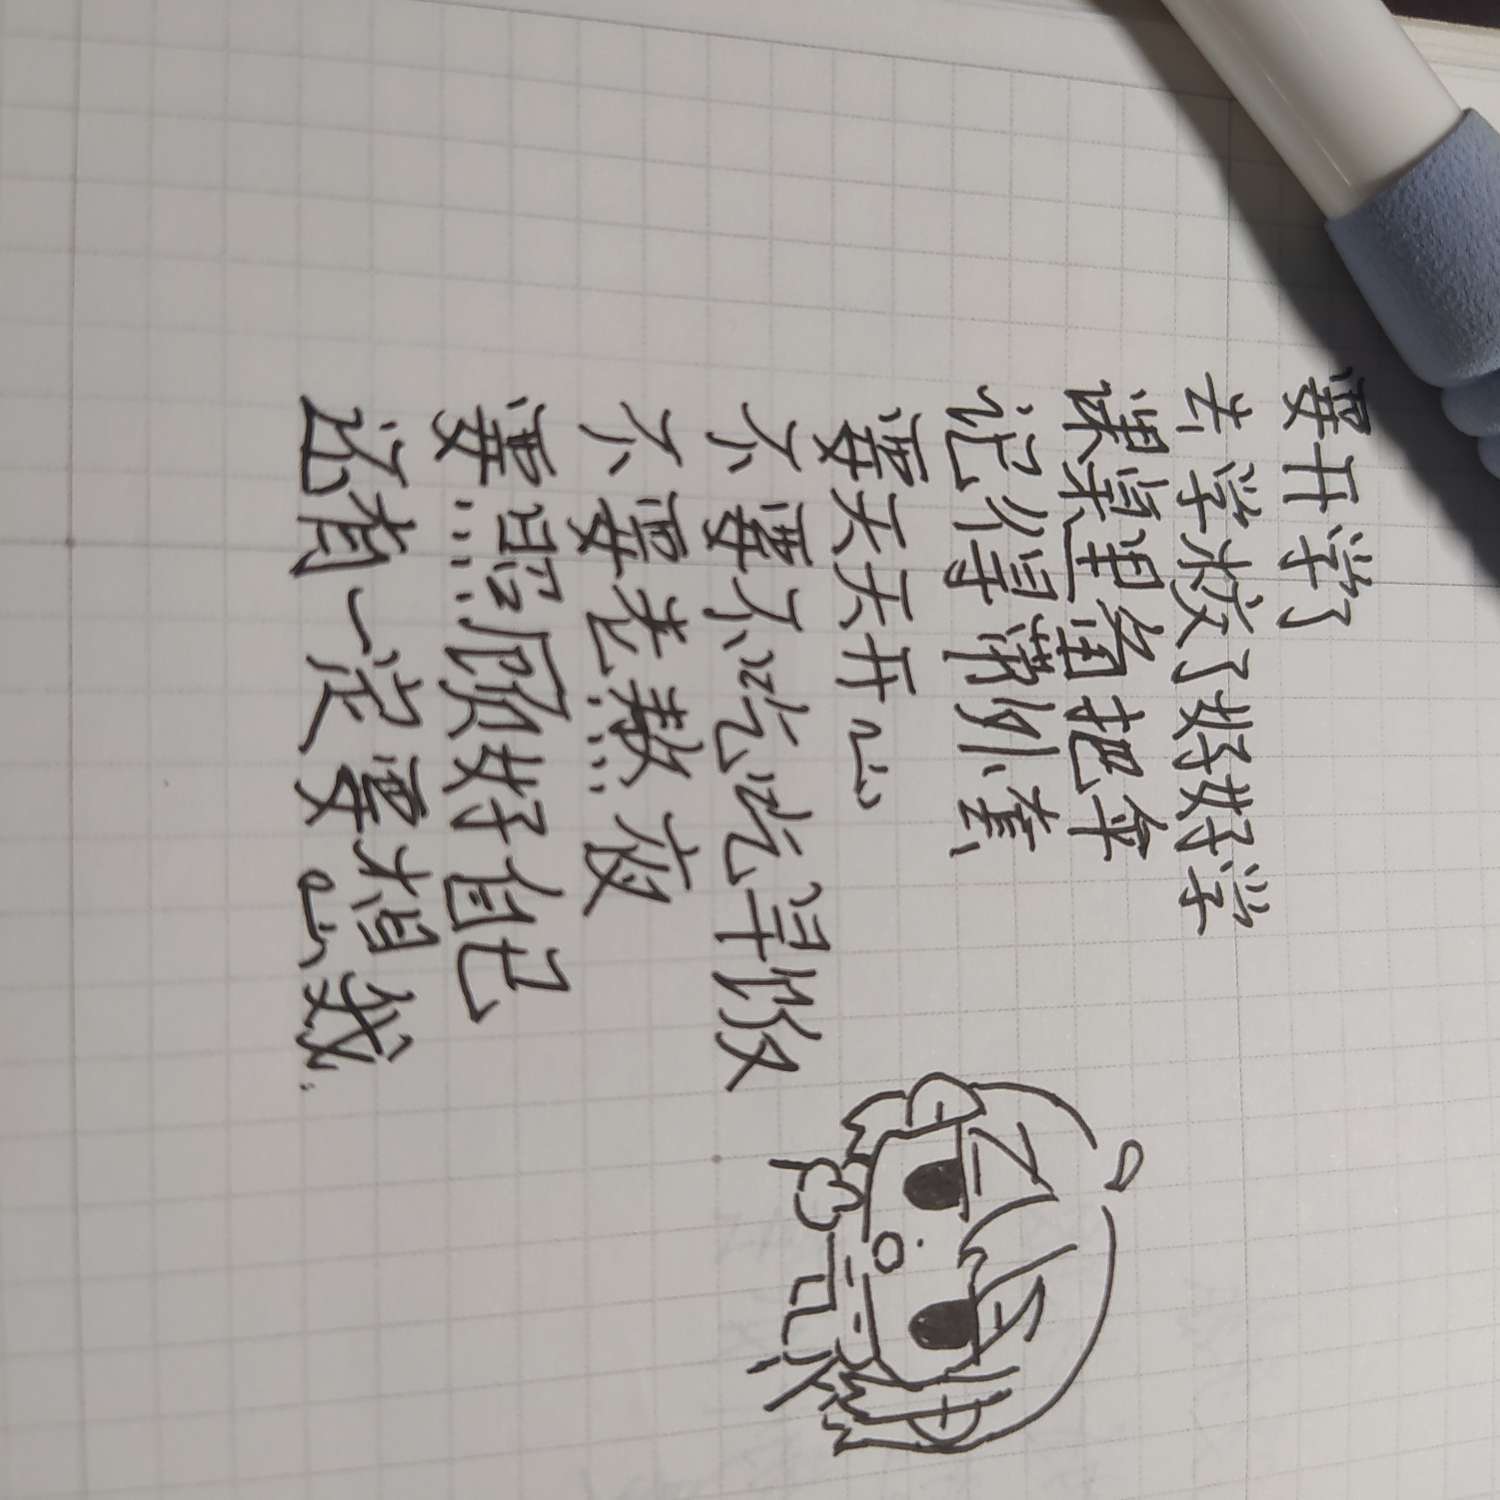 要开学了
去学校了好好学
课桌里备把伞
记得带外套
要天天开心
不要不吃吃早饭
不要老熬夜
要照顾好自己
还有一定要想我.